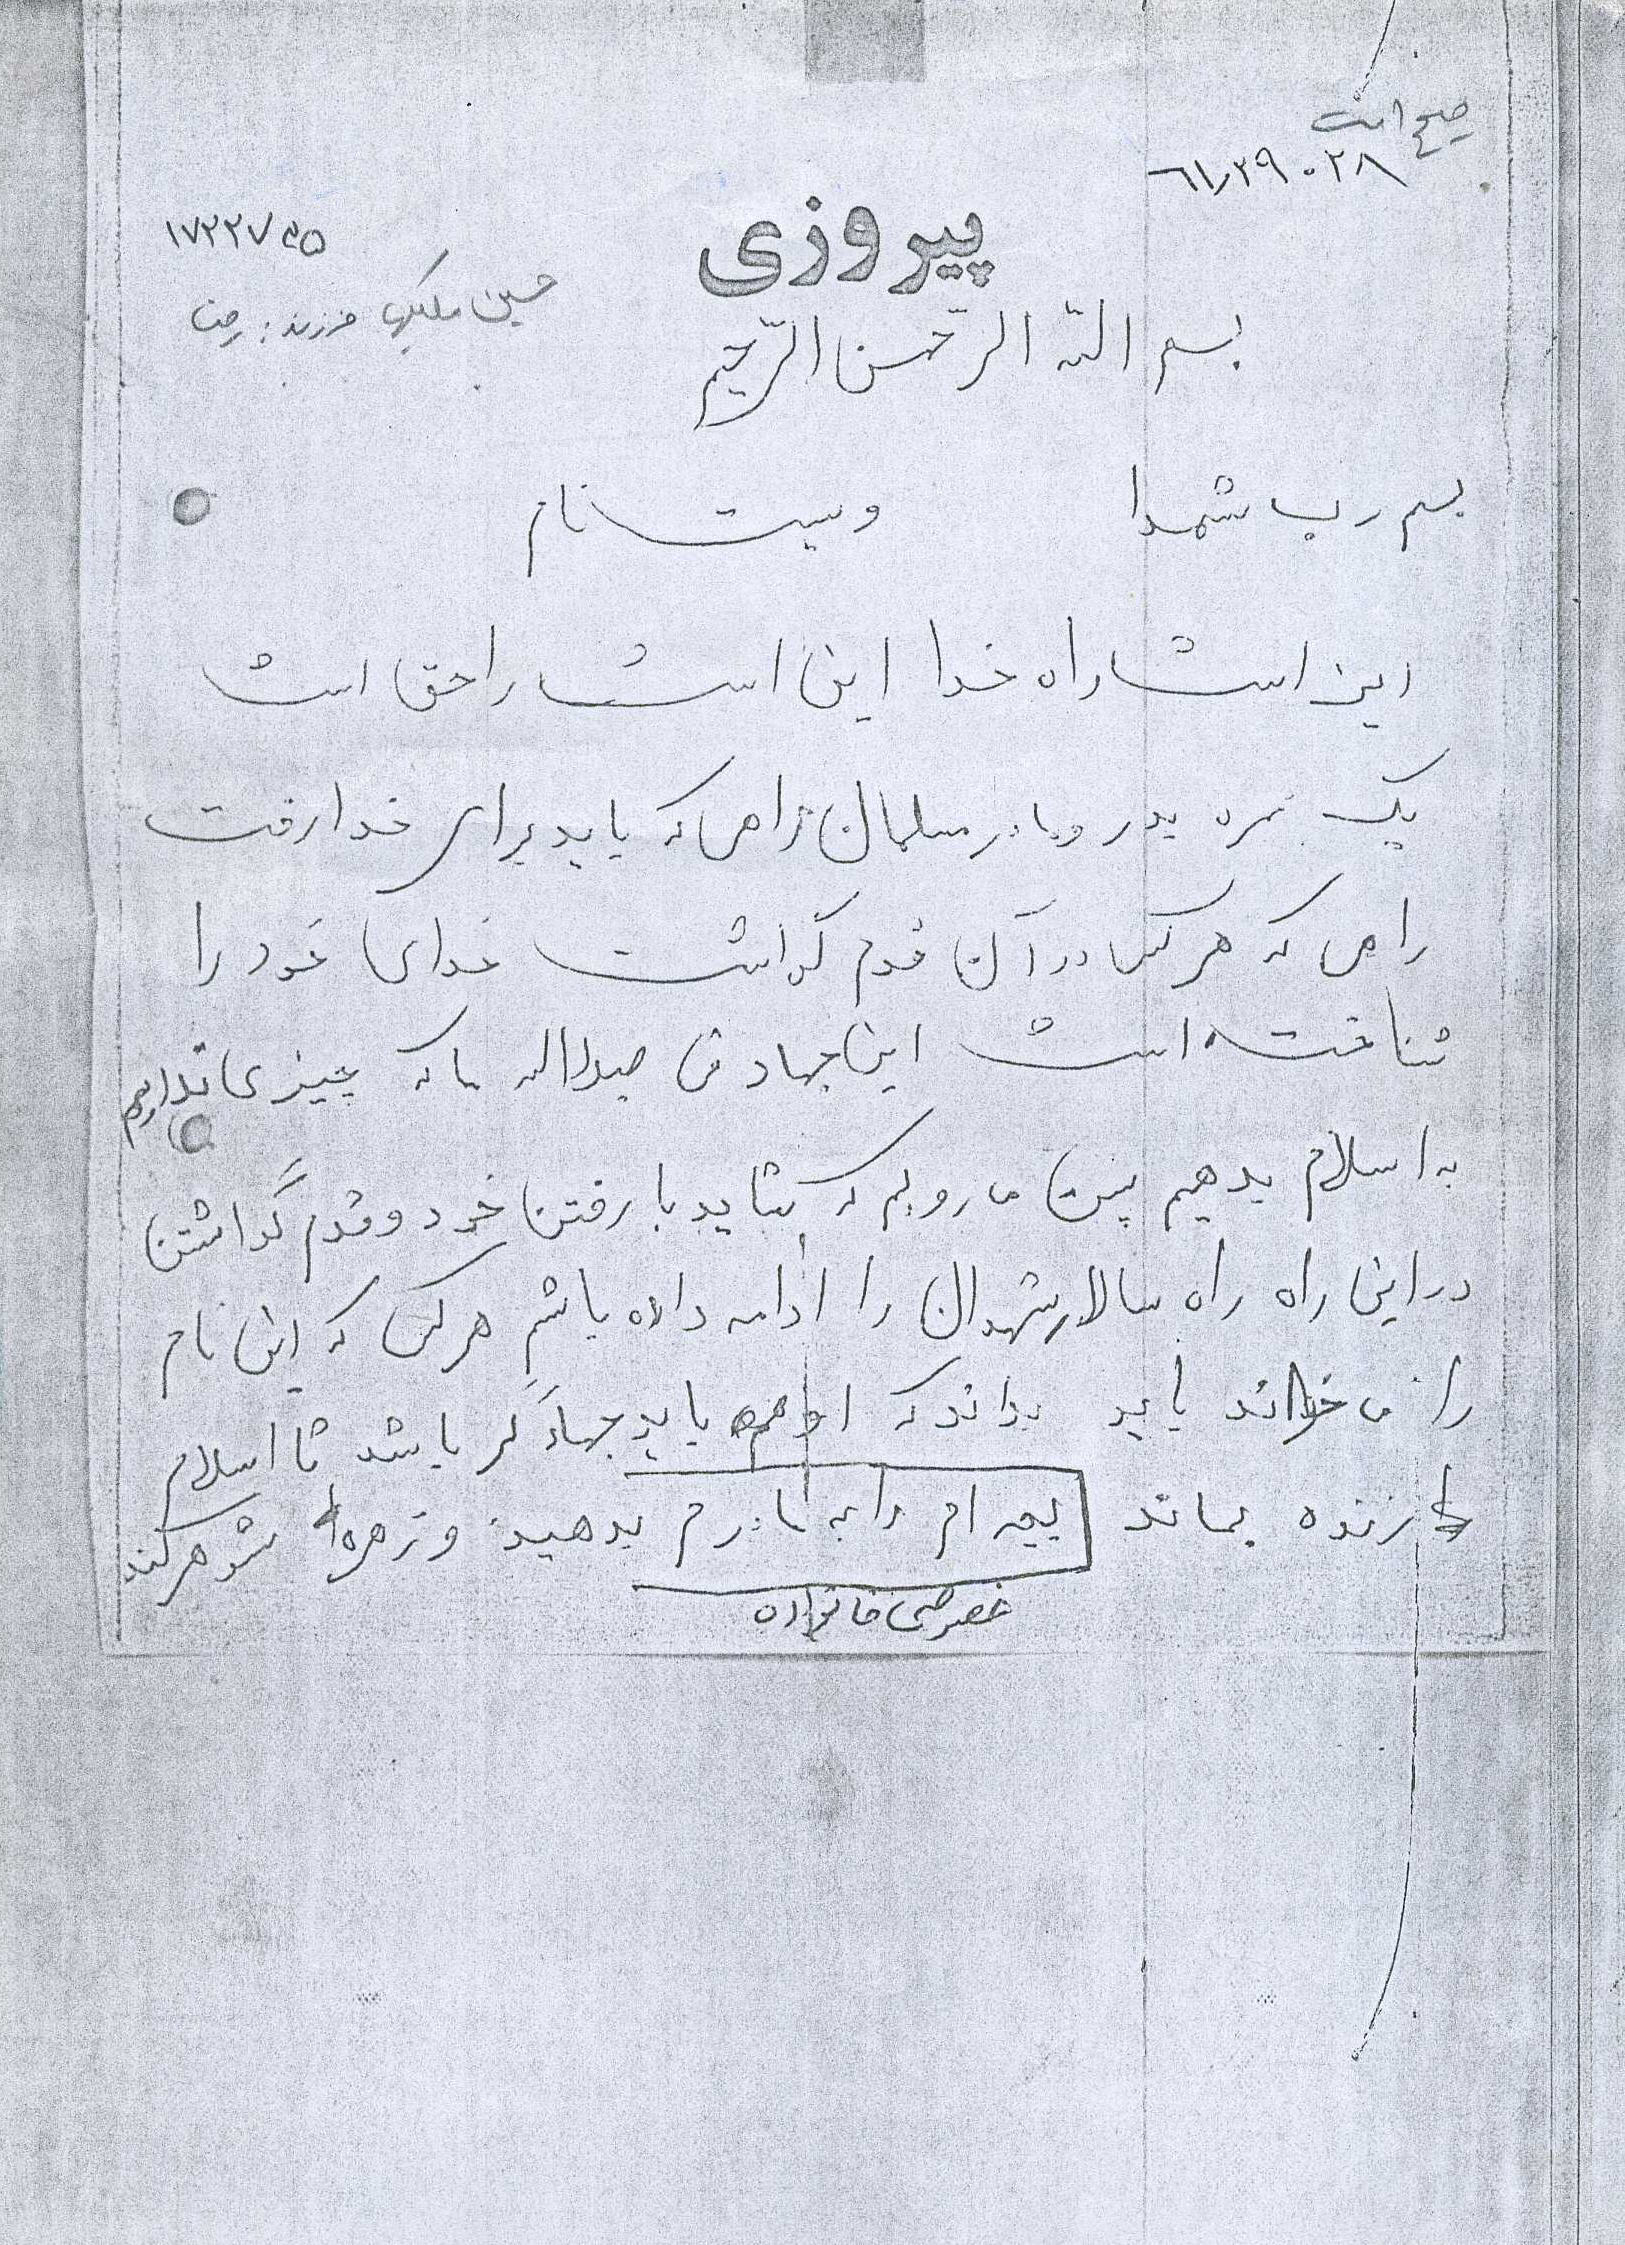 صحیح است
۶۱٫۲۹۰۲۸
پیروزی
۱۷۲۲۷۳۵
حسین فرزند: رضا
بسم الله الرّحمن الرّحیم
بسم رب شهدا وسیت نام
این است راه خدا این است راحق است
یک نمره پدر ومادر مسلمان راهی که باید برای خدا رفت
راهی که هرکس درآن قدم گذاشت خدای خود را
شناخته است این جهاد فی سبیل اله ما که چیزی نداریم
به اسلام بدهیم پس می رویم که شاید با رفتن خود و قدم گذاشتن
دراین راه راه سالار شهدان را ادامه داده باشم هرکس که این نام
را می خواند باید بداند که او هم باید جهادگر باشد تا اسلام
زنده بماند بچه ام را به مادرم بدهید و زهرا شوهر کند
خصوصی خانواده